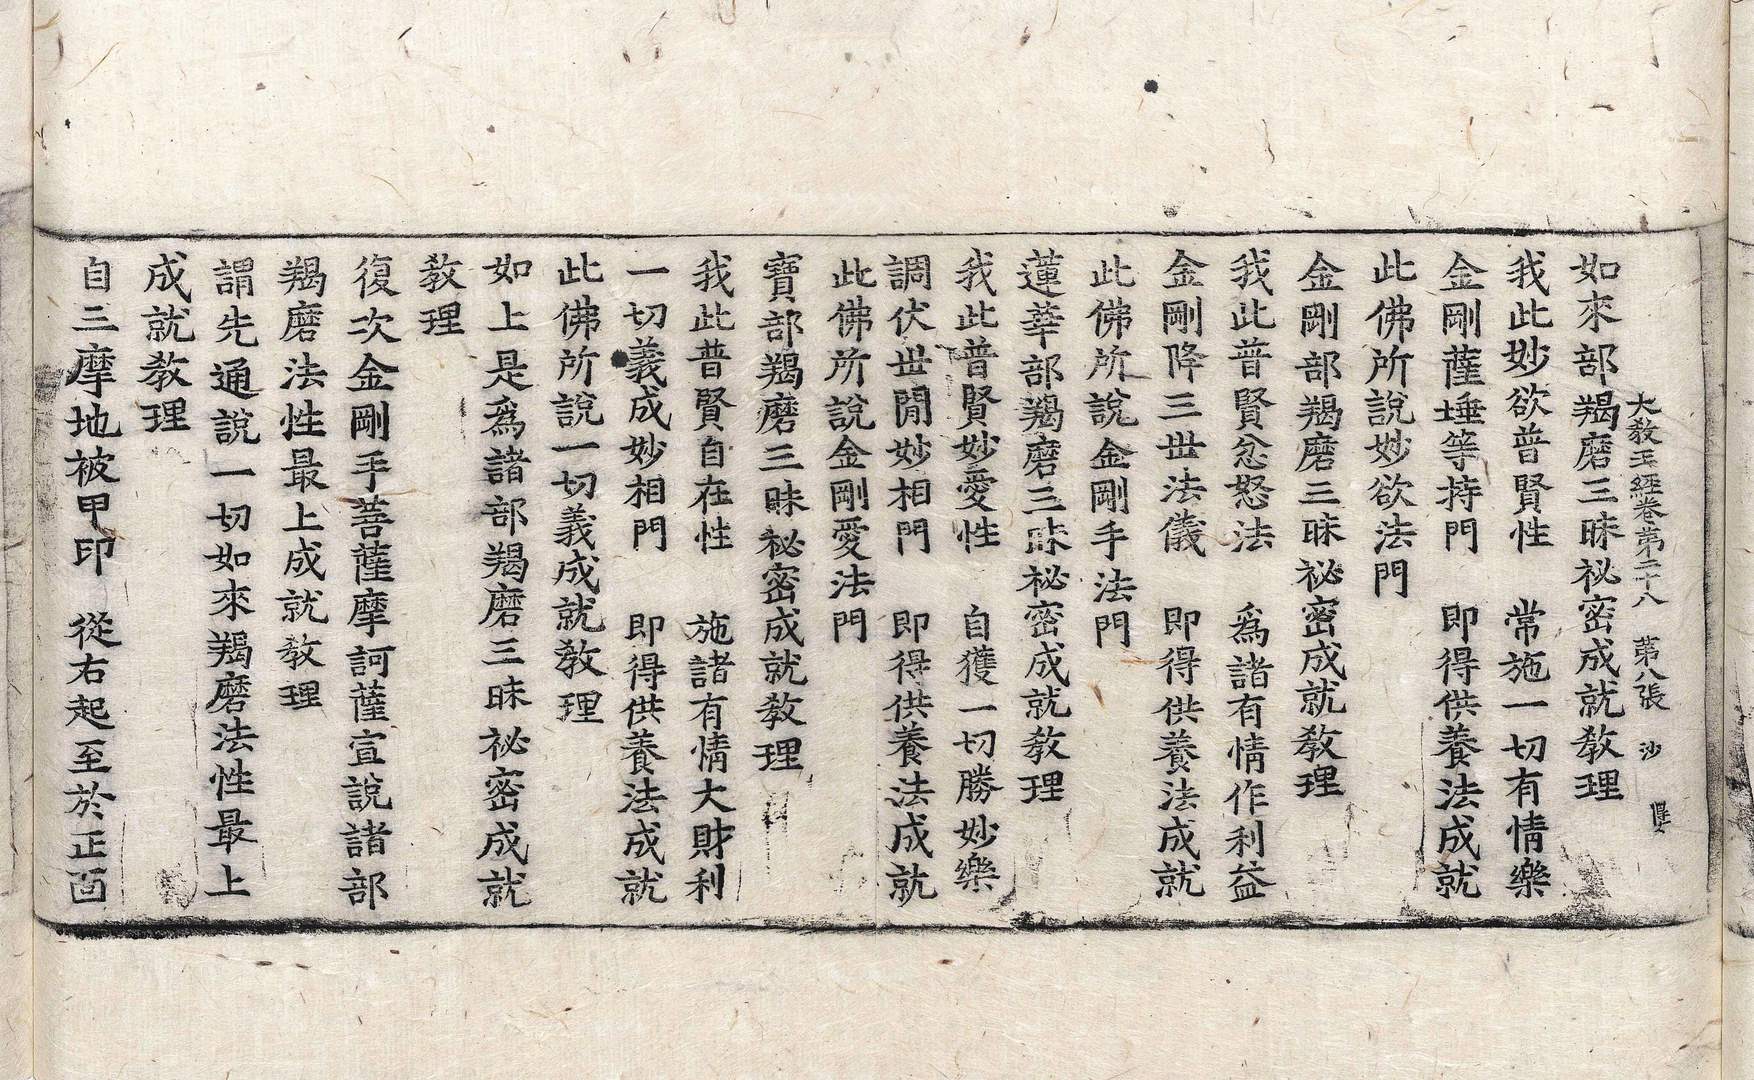 大教王經卷第二十八　第八張　沙
如來部羯磨三昧祕密成就教理
我此妙欲普賢性　常施一切有情樂
金剛薩埵等持門　即得供養法成就
此佛所說妙欲法門
金剛部羯磨三昧祕密成就教理
我此普賢忿怒法　爲諸有情作利益
金剛降三世法儀　即得供養法成就
此佛所說金剛手法門
蓮華部羯磨三昧祕密成就教理
我此普賢妙愛性　自獲一切勝妙樂
調伏世閒妙相門　即得供養法成就
此佛所說金剛愛法門
寶部羯磨三昧祕密成就教理
我此普賢自在性　施諸有情大財利
一切義成妙相門　即得供養法成就
此佛所說一切義成就教理
如上是爲諸部羯磨三昧祕密成就
教理
復次金剛手菩薩摩訶薩宣說諸部
羯磨法性最上成就教理
謂先通說一切如來羯磨法性最上
成就教理
自三摩地被甲印　從右起至於正面